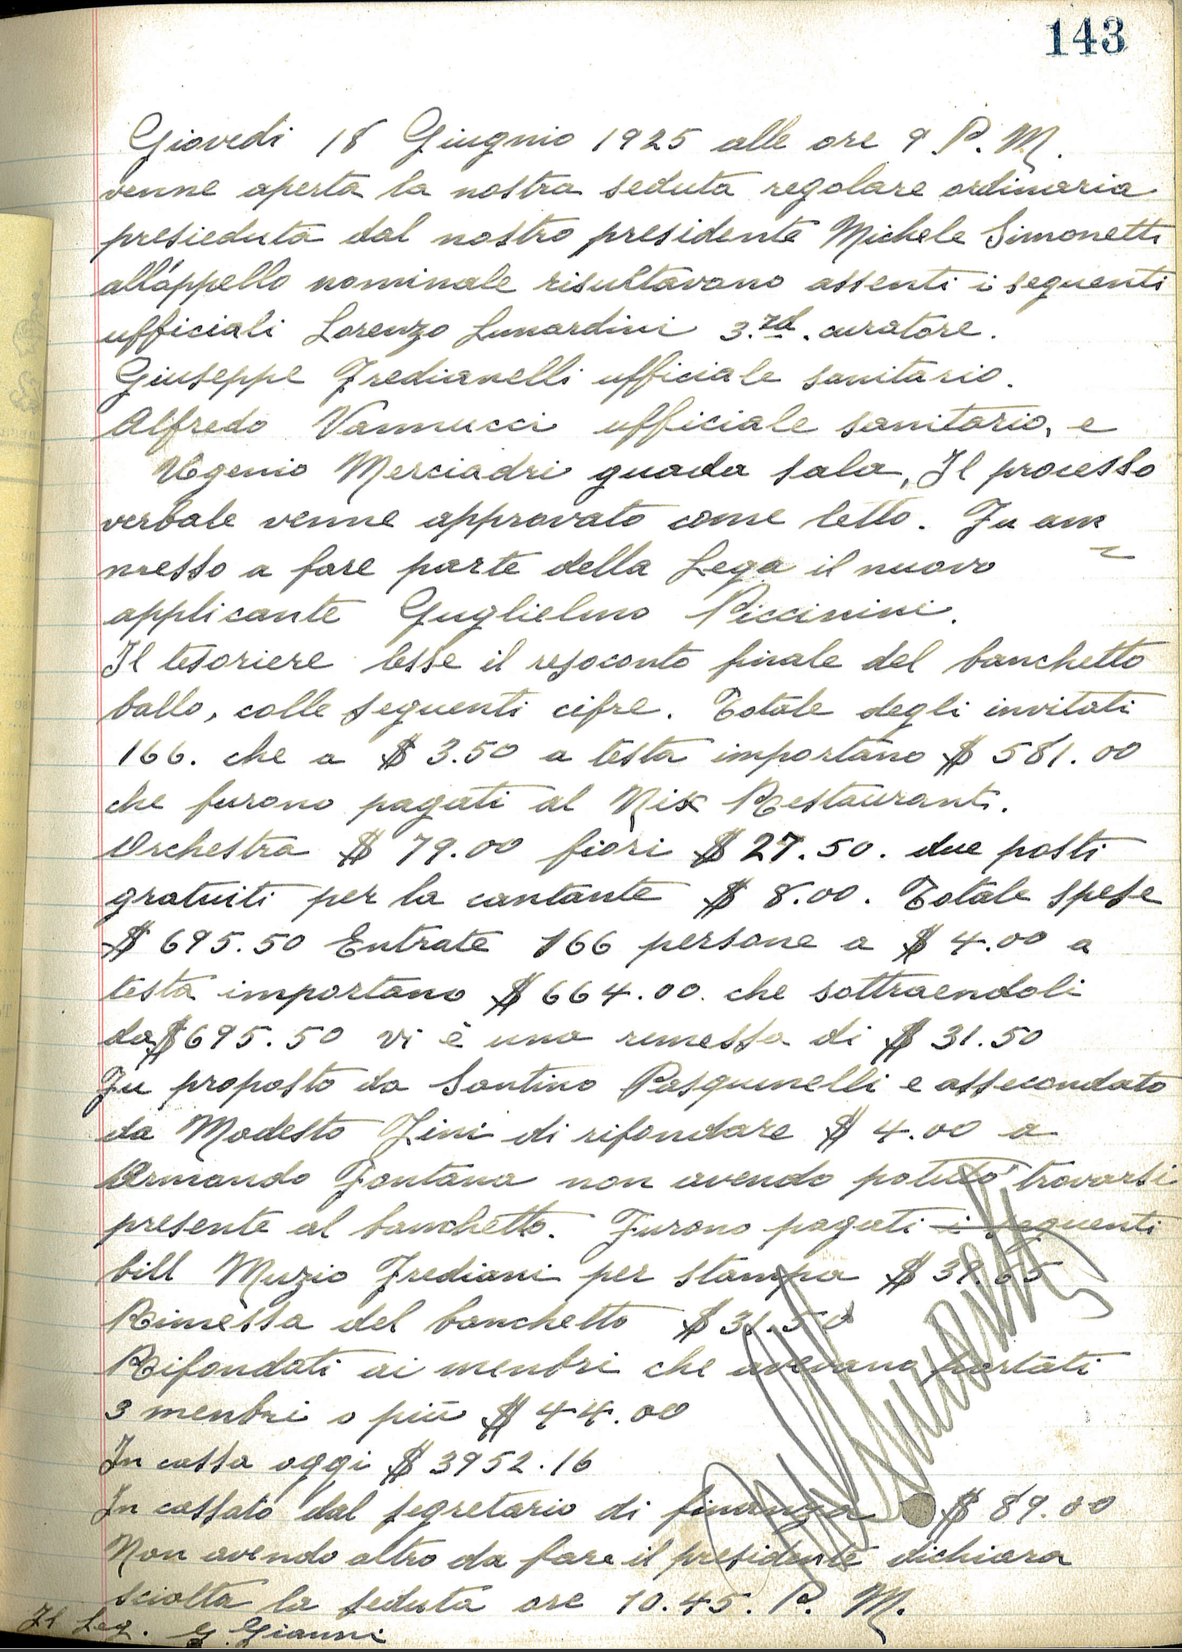 143
Giovedi 18 Giugnio 1925 alle ore 9 P. M.
venne aperta la nostra seduta regolare ordinaria
presieduta dal nostro presidente Michele Simonetti
all'appello nominale risultavano assenti i seguenti
ufficiali Lorenzo Lunardini 3.rd. curatore.
Giuseppe Fredianelli ufficiale sanitario.
Alfredo Vannucci ufficiale sanitario, e
Ugenio Merciadri guada sala, Il processo
verbale venne approvato come letto. Fu am
messo a fare parte della Lega il nuovo
applicante Guglielmo Piccinini.
Il tesoriere lesse il resoconto finale del banchetto
ballo, colle seguenti cifre. Totale degli invitati
166. che a $ 3.50 a testa importano $ 581.00
che furono pagati al Nix Restaurant.
Orchestra $ 79.00 fiori $ 27.50. due posti
gratuiti per la cantante $ 8.00. Totale spese
$ 695.50 Entrate 166 persone a $ 4.00 a
testa importano $ 664.00. che sottraendoli
da $ 695.50 vi è una remessa di $ 31.50
Fu proposto da Santino Pasquinelli e assecondato
da Modesto Lini di rifondare $ 4.00 a
Armando Fontana non avendo potuto trovarsi
presente al banchetto. Furono pagati i seguenti
bill Muzio Frediani per stampa $ 39.65
Rimessa del banchetto $ 31.50
Rifondati ai menbri che avevano portati
3 menbri o più $ 44.00
In cassa oggi $ 3952.16
In cassato dal segretario di finanza $ 89.00
Non avendo altro da fare il presidente dichiara
sciolta la seduta ore 10.45. P. M.
Il Seg. G. Gianni